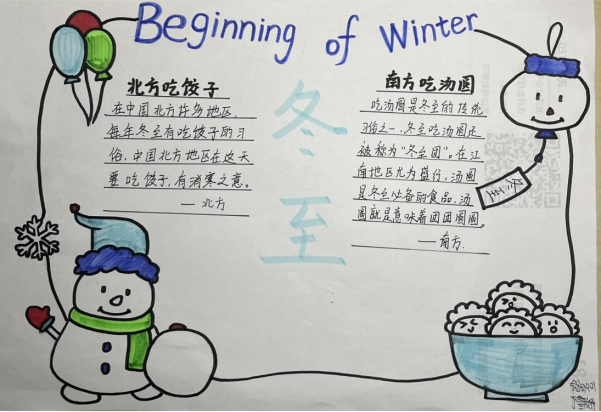 Beginning of Winter
北方吃饺子
在中国北方许多地区,
每年冬至有吃饺子的习
俗。中国北方地区在这天
要吃饺子,有消寒之意。
——北方
冬至
南方吃汤圆
吃汤圆是冬至的传统
习俗之一,冬至吃汤圆还
被称为“冬至团”。在江
南地区尤为盛行,汤圆
是冬至必备的食品,汤
圆就是意味着团团圆圆
——南方.
冬至